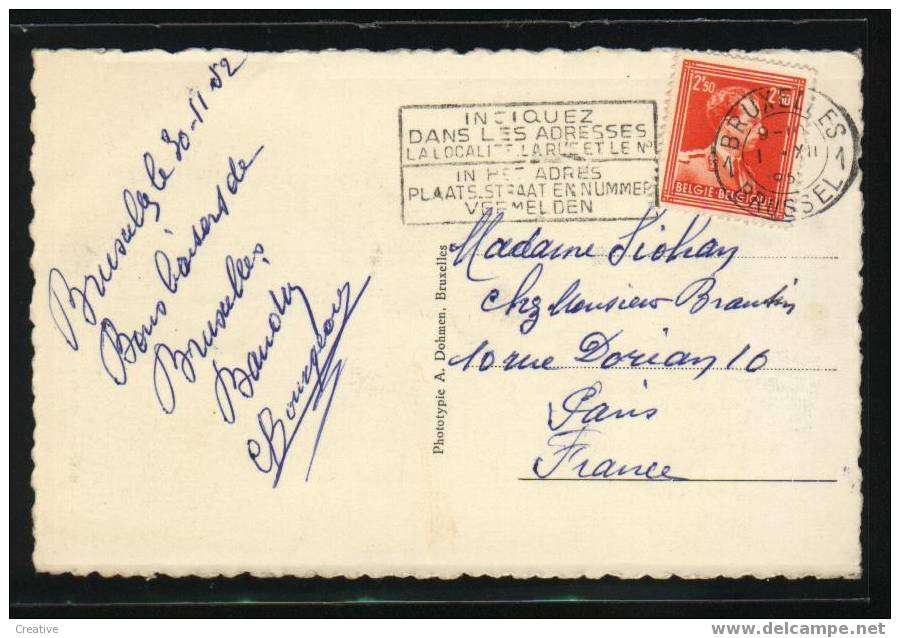 Bruxelles le 30-11-52
Bons baisers de
Bruxelles.
Bourgeois
INDIQUEZ
DANS LES ADRESSES
LA LOCALITE, LA RUE ET LE Nº
IN HET ADRES
PLAATS, STRAAT EN NUMMER
VERMELDEN
2'50 2'50
BELGIE-BELGIQUE
BRUXELLES
1 1
9-
1 -XII
BRUSSEL
Phototypie A. Dohmen, Bruxelles
Madame
Chez Monsieur Brantin
10 rue Dorian 10
Paris
France
Creative
www.delcampe.net